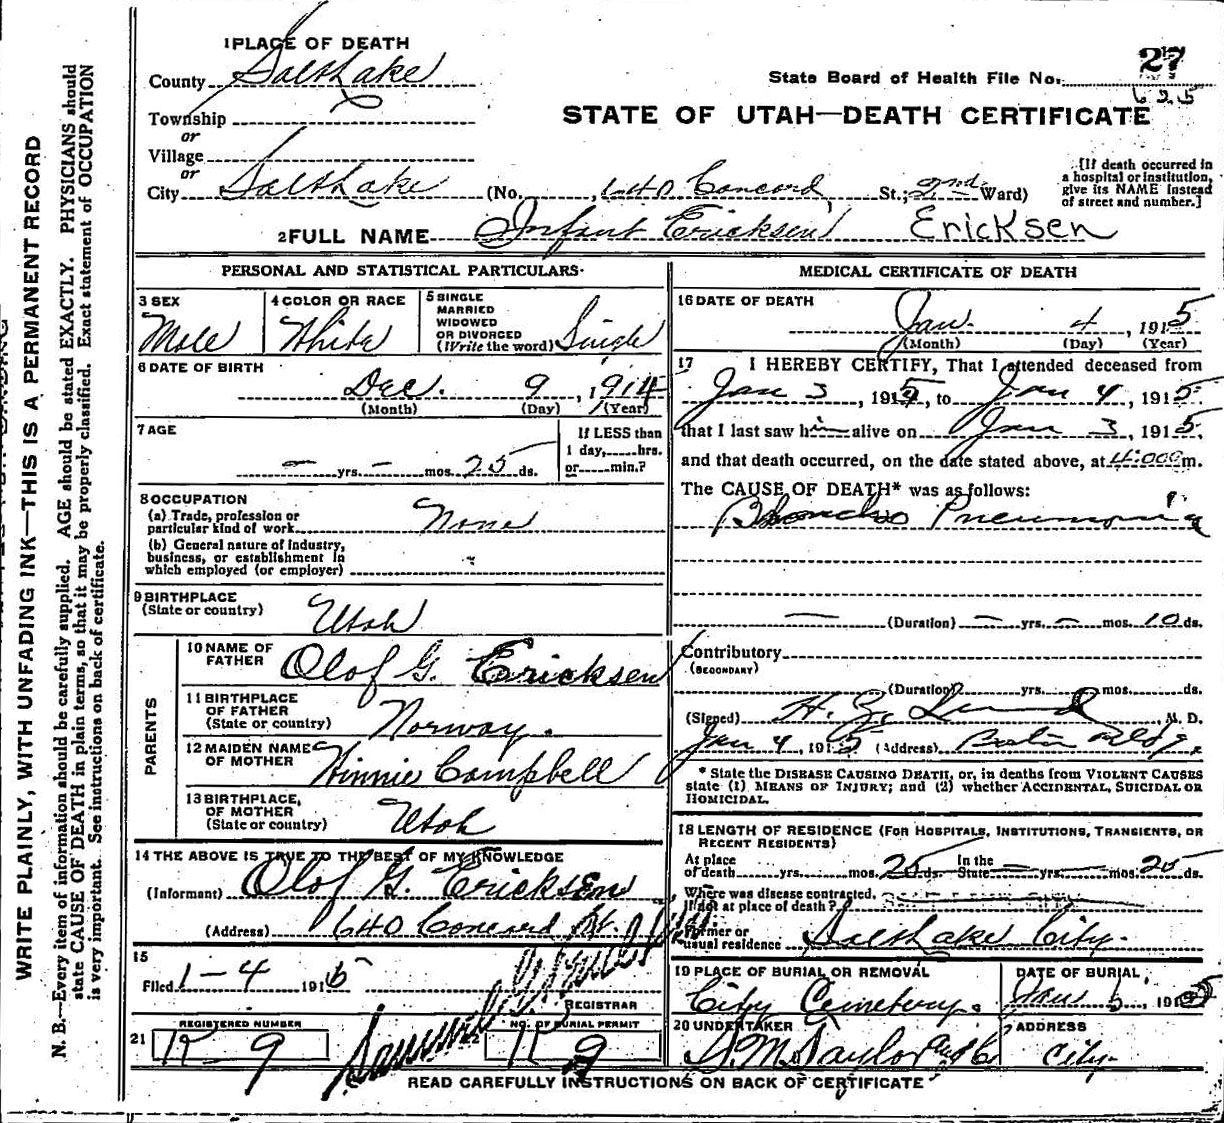 WRITE PLAINLY, WITH UNFADING INK—THIS IS A PERMANENT RECORD
N. B.—Every item of information should be carefully supplied. AGE should be stated EXACTLY. PHYSICIANS should
state CAUSE OF DEATH in plain terms, so that it may be properly classified. Exact statement of OCCUPATION
is very important. See instructions on back of certificate.
1 PLACE OF DEATH
County Salt Lake
Township
or
Village
or
City Salt Lake (No. 640 Concord St.; 2nd Ward)
State Board of Health File No. 27
625
STATE OF UTAH—DEATH CERTIFICATE
[If death occurred in
a hospital or institution,
give its NAME instead
of street and number.]
2 FULL NAME Infant Ericksen Ericksen
PERSONAL AND STATISTICAL PARTICULARS
3 SEX Male
4 COLOR OR RACE White
5 SINGLE
MARRIED
WIDOWED
OR DIVORCED
(Write the word) Single
6 DATE OF BIRTH
Dec. 9, 1914
(Month) (Day) (Year)
7 AGE
— yrs. — mos. 25 ds.
If LESS than
1 day, hrs.
or min.?
8 OCCUPATION
(a) Trade, profession or
particular kind of work None
(b) General nature of industry,
business, or establishment in
which employed (or employer)
9 BIRTHPLACE
(State or country) Utah
PARENTS
10 NAME OF
FATHER Olof G. Ericksen
11 BIRTHPLACE
OF FATHER
(State or country) Norway.
12 MAIDEN NAME
OF MOTHER Winnie Campbell
13 BIRTHPLACE,
OF MOTHER
(State or country) Utah
14 THE ABOVE IS TRUE TO THE BEST OF MY KNOWLEDGE
(Informant) Olof G. Ericksen
(Address) 640 Concord St.
15
Filed 1-4 1915
REGISTRAR
REGISTERED NUMBER
21 K-9
NO. OF BURIAL PERMIT
22 K 9
MEDICAL CERTIFICATE OF DEATH
16 DATE OF DEATH
Jan. 4, 1915
(Month) (Day) (Year)
17 I HEREBY CERTIFY, That I attended deceased from
Jan 3, 1915, to Jan 4, 1915,
that I last saw him alive on Jan 3, 1915,
and that death occurred, on the date stated above, at 4:00 a m.
The CAUSE OF DEATH* was as follows:
Broncho Pneumonia
— (Duration) — yrs. — mos. 10 ds.
Contributory
(SECONDARY)
(Duration) yrs. mos. ds.
(Signed) H. Z. Lund, M. D.
Jan 4, 1915 (Address) Boston Bldg.
* State the DISEASE CAUSING DEATH, or, in deaths from VIOLENT CAUSES
state (1) MEANS OF INJURY; and (2) whether ACCIDENTAL, SUICIDAL OR
HOMICIDAL.
18 LENGTH OF RESIDENCE (FOR HOSPITALS, INSTITUTIONS, TRANSIENTS, OR
RECENT RESIDENTS)
At place
of death yrs. mos. 25 ds. In the
State — yrs. — mos. 25 ds.
Where was disease contracted,
If not at place of death?
Former or
usual residence Salt Lake City.
19 PLACE OF BURIAL OR REMOVAL
City Cemetery.
DATE OF BURIAL
Jan 5, 1915
20 UNDERTAKER
S. M. Taylor and Co
ADDRESS
City.
READ CAREFULLY INSTRUCTIONS ON BACK OF CERTIFICATE